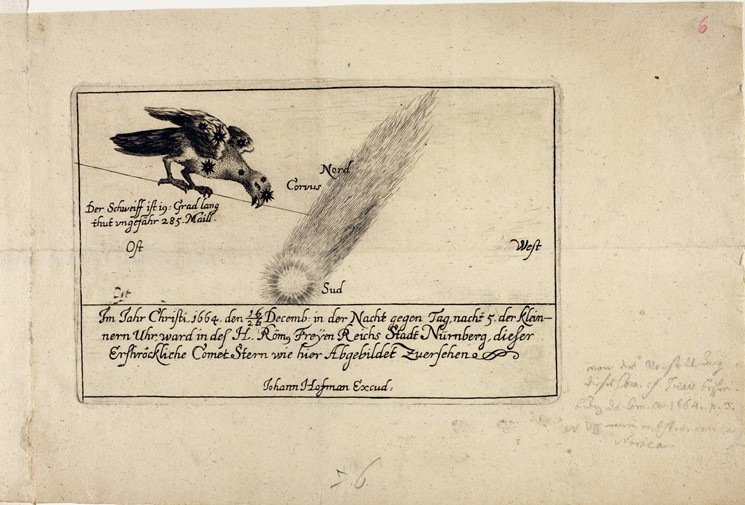 6
Nord
Corvus
Der Schweiff ist 19: Grad lang
thut vngefähr 285. Maill.
Ost
West
Sud
Im Jahr Christi. 1664. den 16/26 Decemb: in der Nacht gegen Tag, nacht 5. der klein-
nern Uhr, ward in des H. Röm, Freyen Reichs Stadt Nürnberg, dieser
Erschröckliche Comet Stern wie hier Abgebildet Zuersehen
Iohann Hofman Excud,
1664. p. 3.
6.